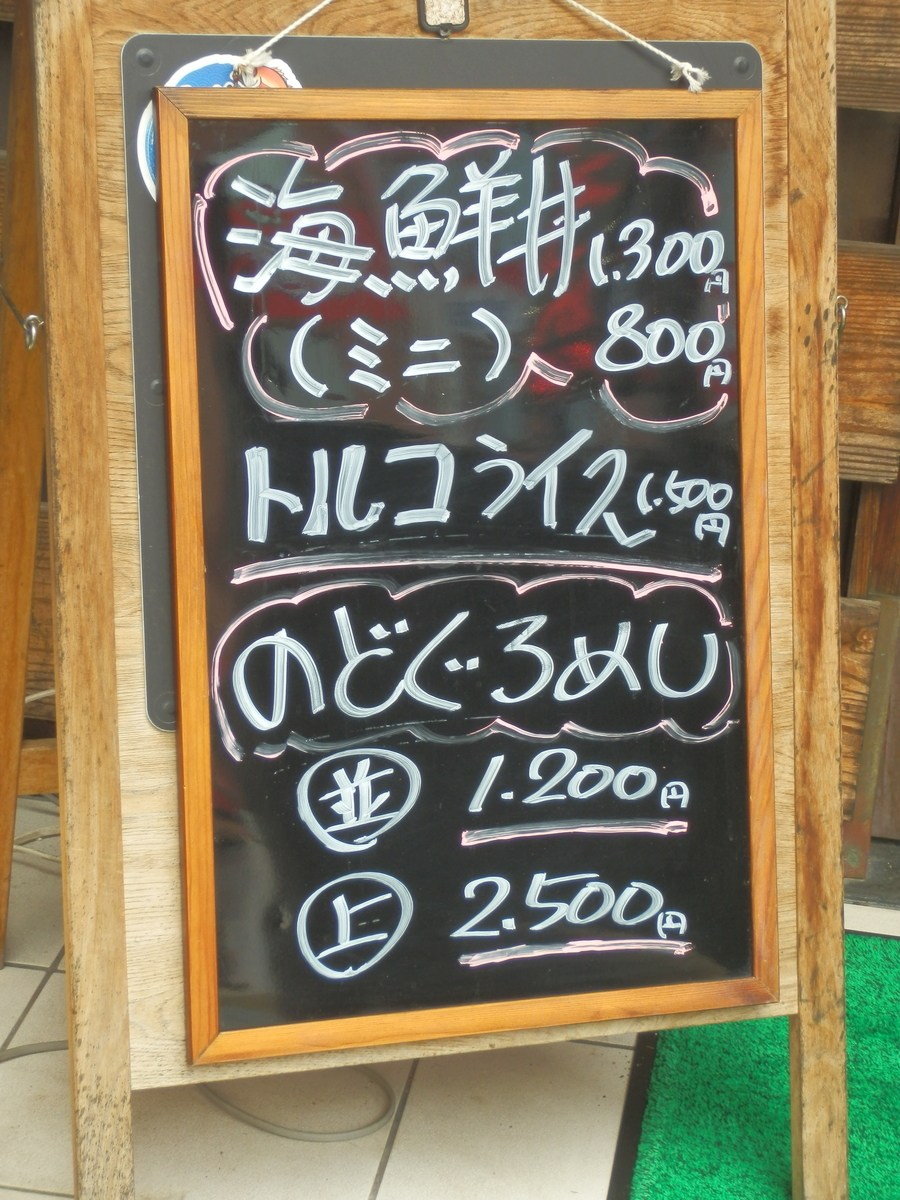 海鮮丼 1.300円
(ミニ) 800円
トルコライス 1.500円
のどぐろめし
並 1.200円
上 2.500円